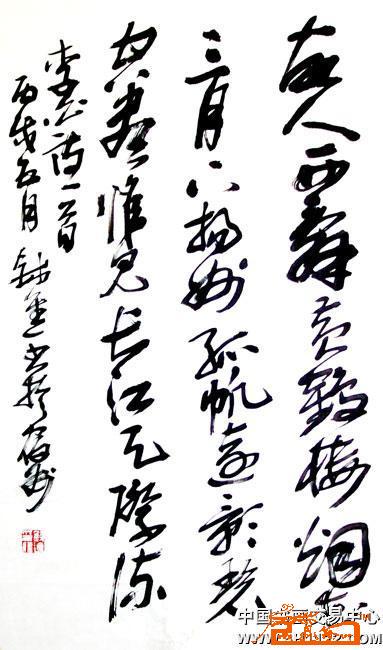 故人西辞黄鹤楼烟花
三月下扬州孤帆远影碧
空尽惟见长江天际流
李白诗一首
丙戌五月 金 书于 州
中国书画交易中心